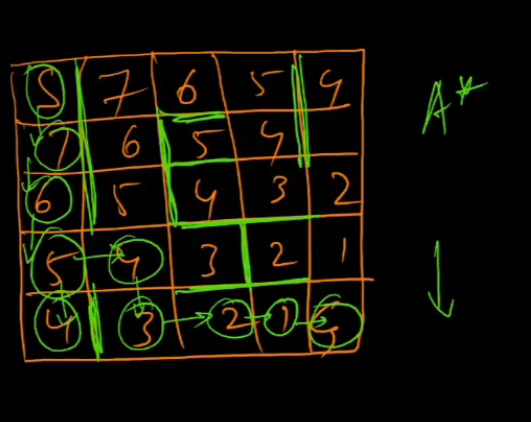 S 7 6 5 4
7 6 5 4
6 5 4 3 2
5 4 3 2 1
4 3 2 1 G
A*